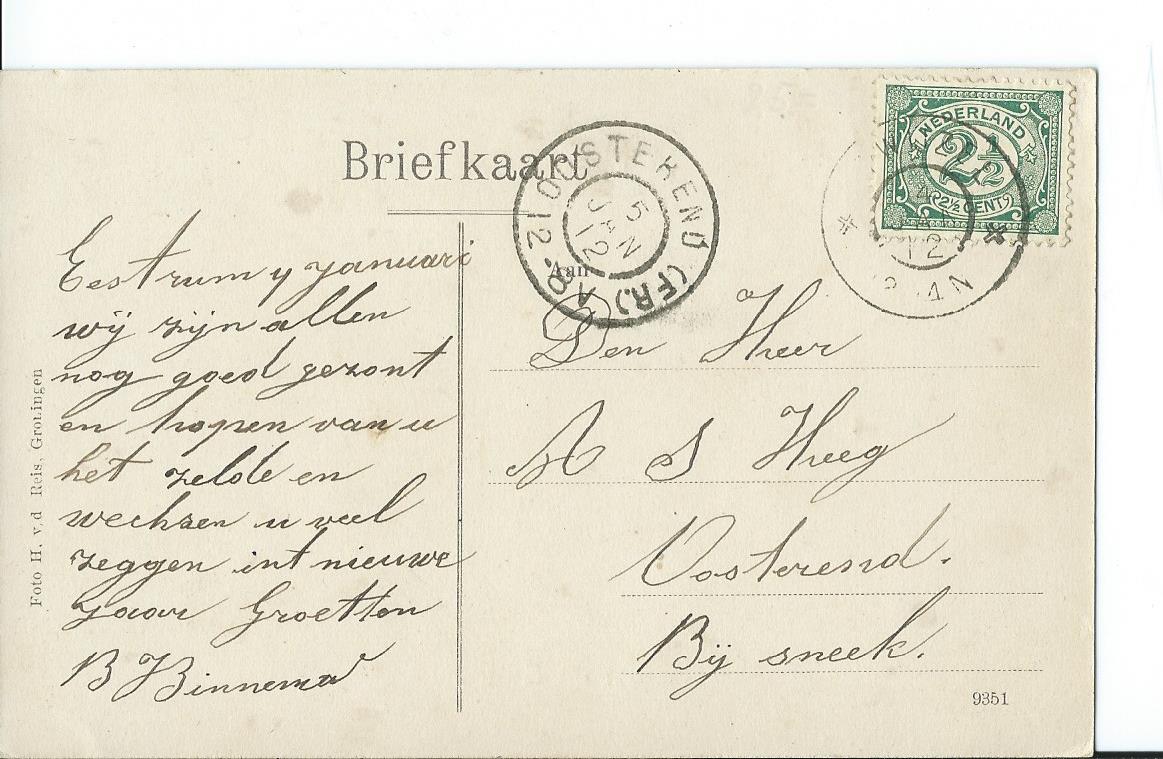 Briefkaart
NEDERLAND
2½
2½ CENT
OOSTEREND (FR.)
5
JAN
12
12-8A
12
Aan
Eestrum 4 januari
wij zijn allen
nog goed gezont
en hopen van u
het zelde en
wechsen u veel
zeggen int nieuwe
jaar Groetten
B Binnema
Den Heer
A S Heeg
Oosterend.
Bij sneek.
Foto H. v.d Reis, Groningen
9351